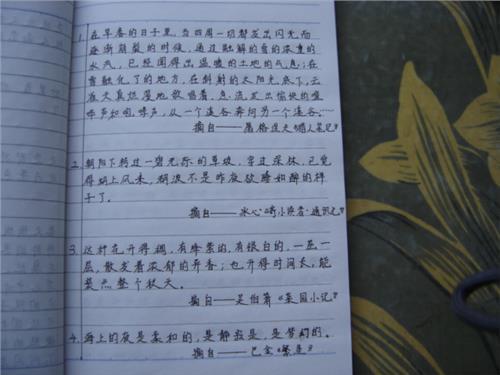 1. 在早春的日子里,当四周一切都发出闪光而
逐渐崩裂的时候,通过融解的雪的浓重的
水气,已经闻得出温暖的土地的气息;在
雪融化了的地方,在斜射的太阳光底下,云
雀天真烂漫地歌唱着,急流发出愉快的喧
哗声和咆哮声,从一个溪谷奔向另一个溪谷……
摘自——屠格涅夫《猎人笔记》
2. 朝阳下转过一碧无际的草坡,穿过深林,已觉
得湖上风来,湖波不是昨夜欲睡如醉的样
子了。
摘自——冰心《寄小读者·通讯七》
3. 这种花开得稠,有绛紫的,有银白的,一层一
层,散发着浓郁的异香;也开得时间长,能
装点整个秋天。
摘自——吴伯箫《菜园小记》
4. 海上的夜是柔和的,是静寂是,是梦幻的。
摘自——巴金《繁星》